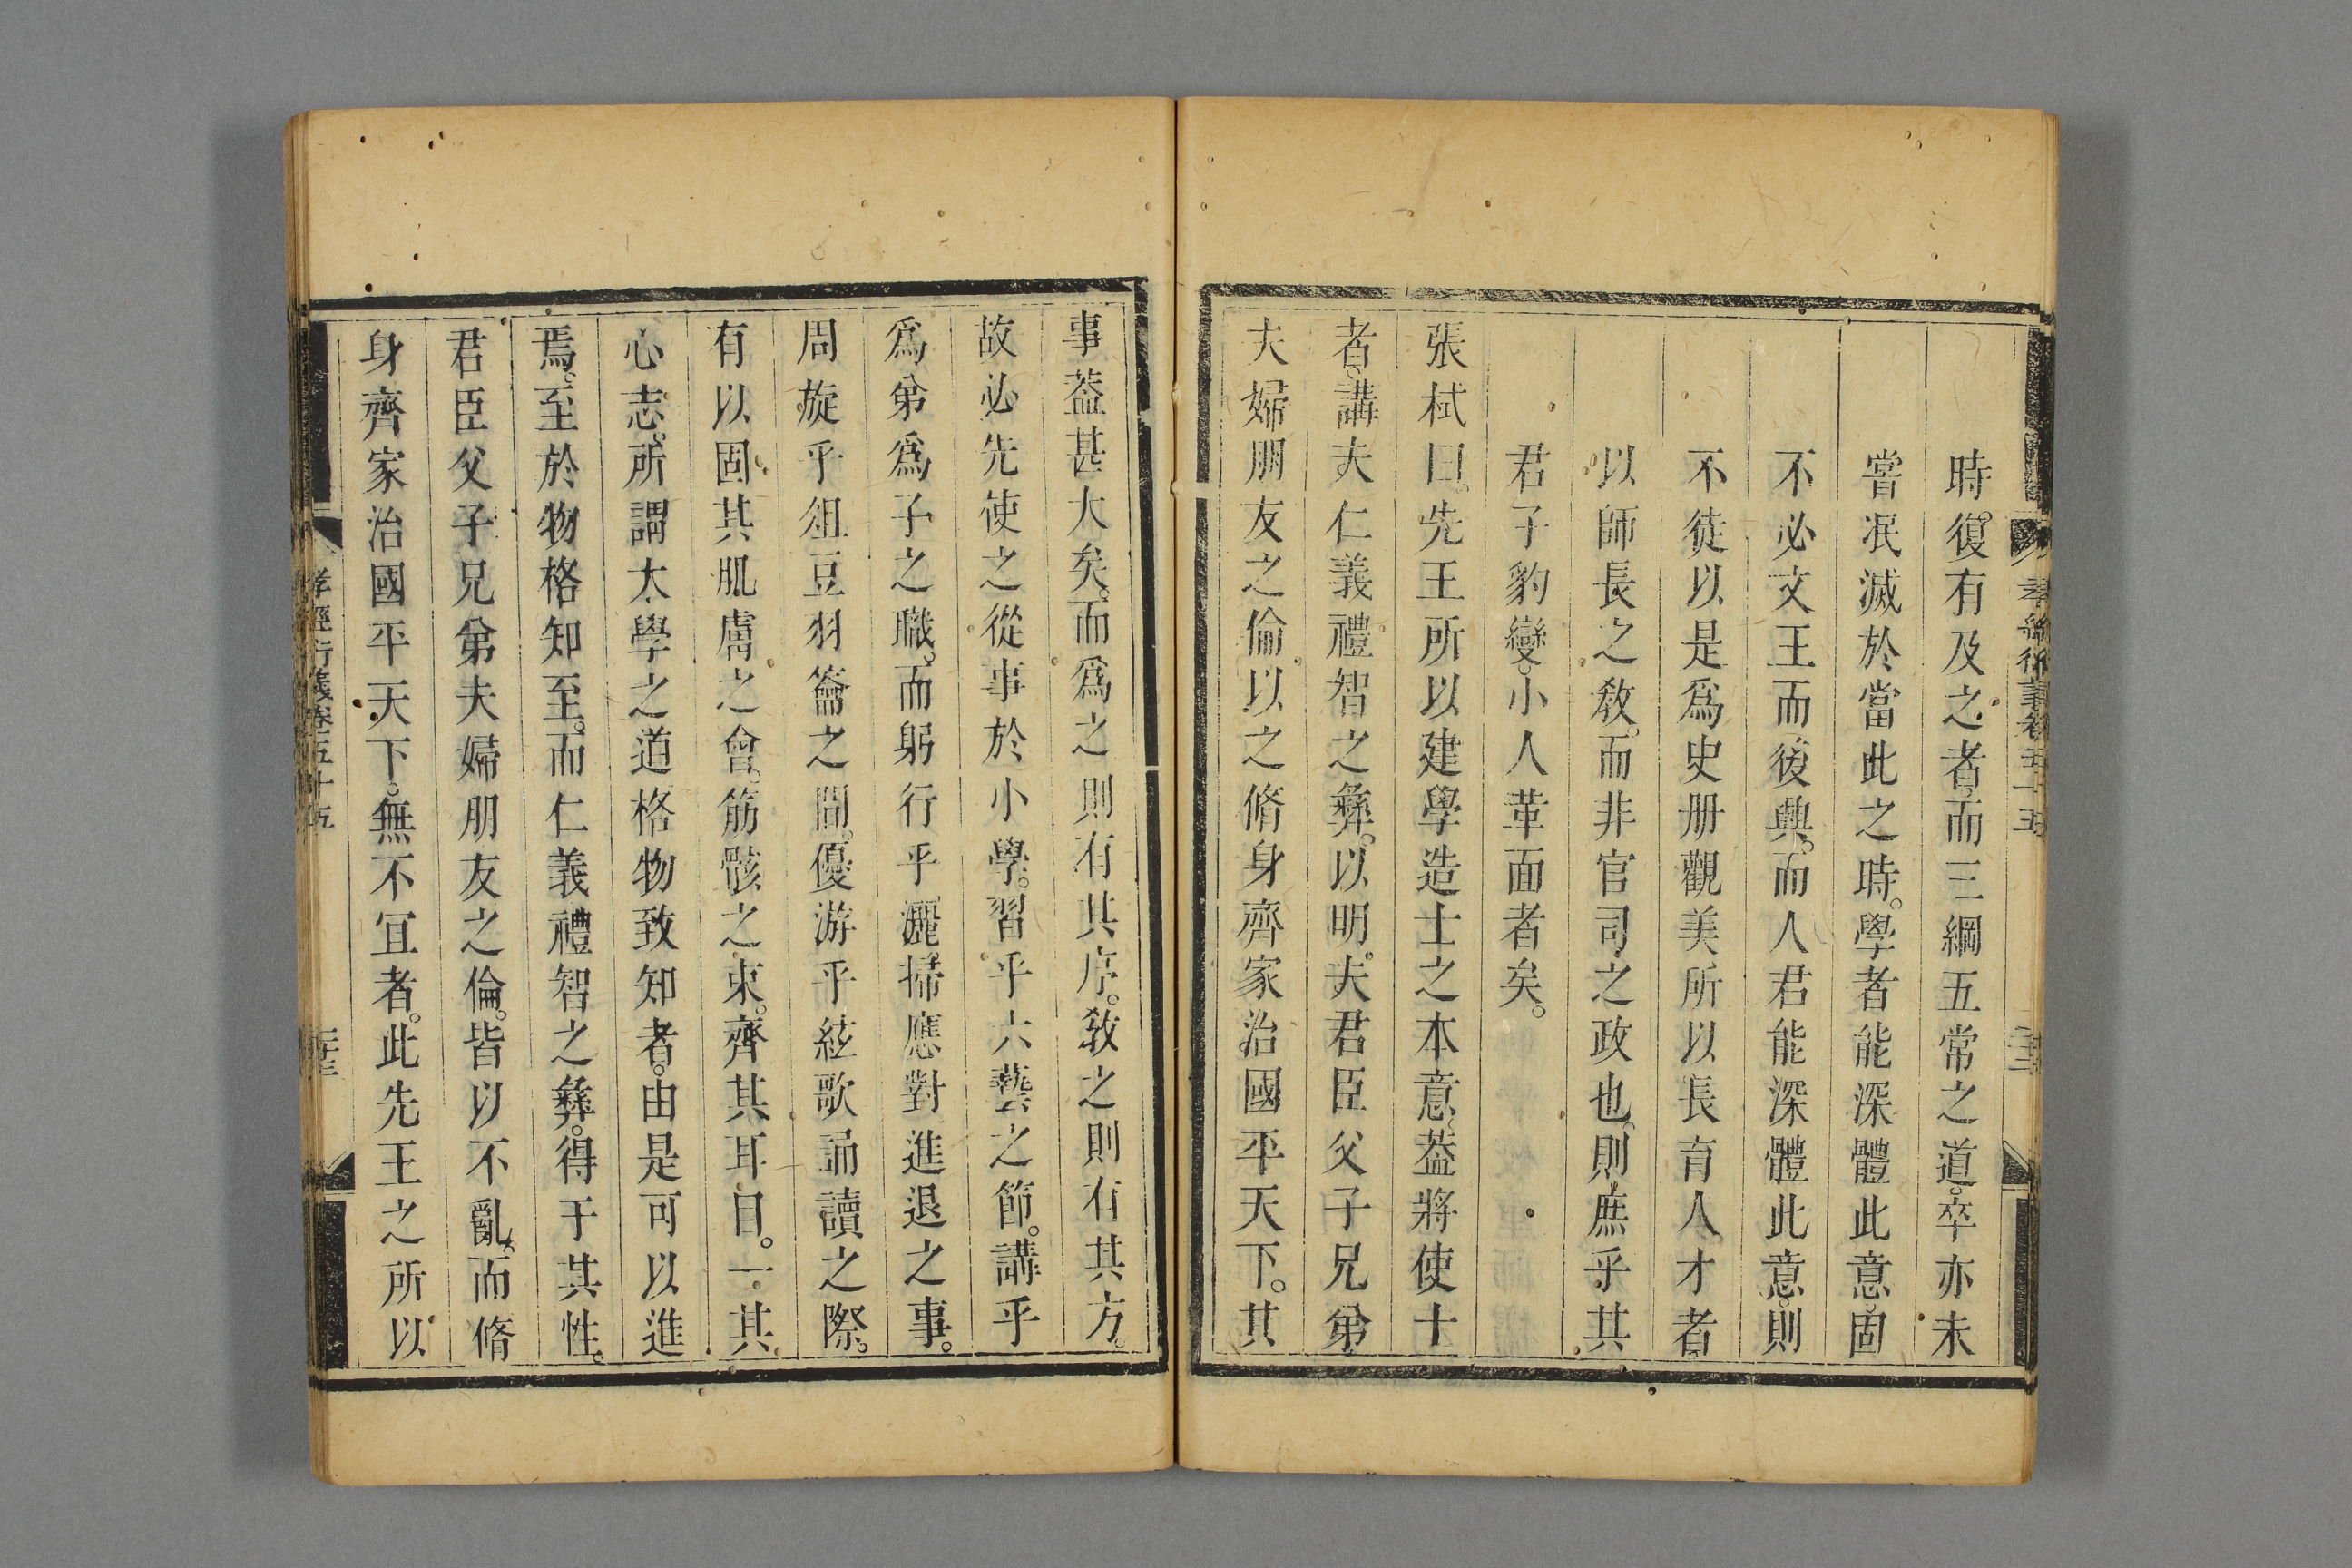 孝經衍義卷五十五
時。復有及之者。而三綱五常之道。卒亦未
嘗泯滅於當此之時。學者能深體此意。固
不必文王而後興。而人君能深體此意。則
不徒以是爲史册觀美。所以長育人才者。
以師長之敎。而非官司之政也。則庶乎其
君子豹變。小人革面者矣。
張栻曰。先王所以建學造士之本意。葢將使士
者。講夫仁義禮智之彝。以明夫君臣父子兄弟
夫婦朋友之倫以之脩身齊家治國平天下。其
事葢甚大矣。而爲之則有其序。敎之則有其方。
故必先使之從事於小學。習乎六藝之節。講乎
爲弟爲子之職。而躬行乎灑掃應對進退之事。
周旋乎俎豆羽籥之間。優游乎絃歌誦讀之際。
有以固其肌膚之會。筋骸之束。齊其耳目。一其
心志。所謂太學之道格物致知者。由是可以進
焉。至於物格知至。而仁義禮智之彝。得于其性。
君臣父子兄弟夫婦朋友之倫。皆以不亂。而脩
身齊家治國平天下。無不宜者。此先王之所以
孝經衍義卷五十五